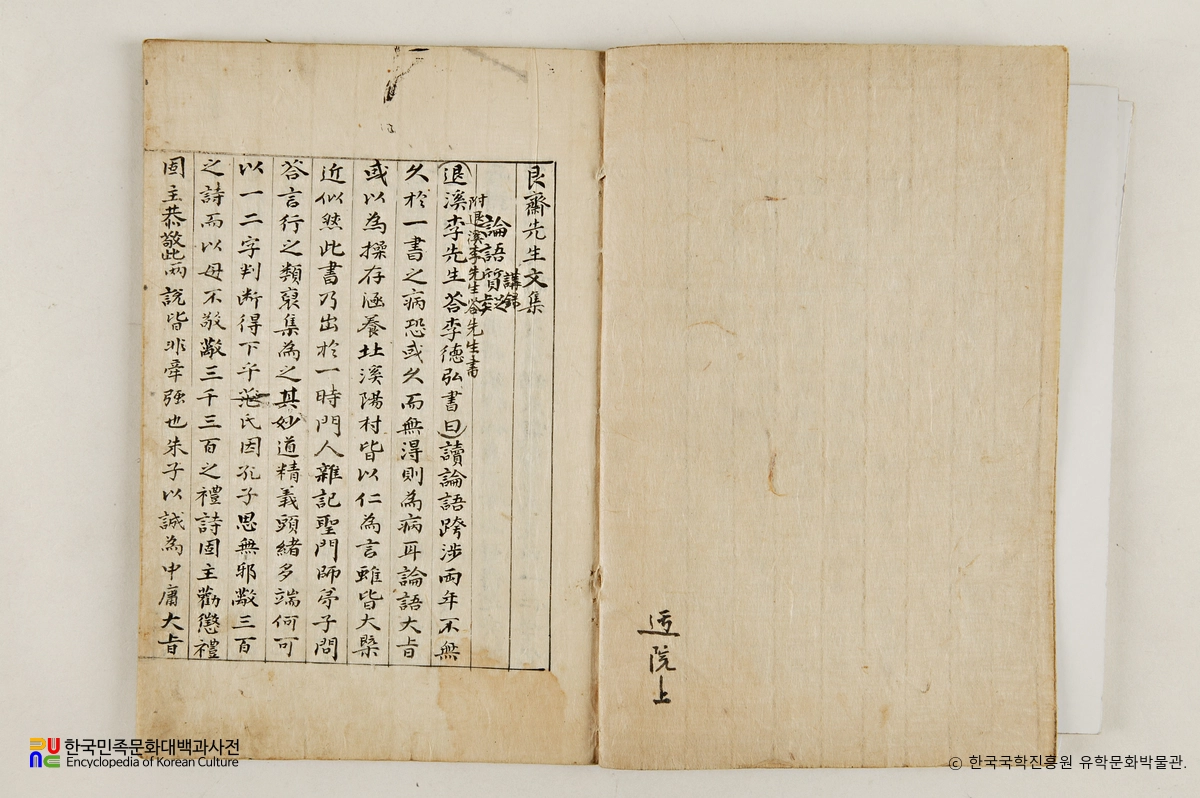 迃院上
艮齋先生文集
論語質疑
講錄
附退溪李先生答先生書
退溪李先生答李德弘書曰讀論語跨涉兩年不無
久於一書之病恐或久而無得則為病耳論語大旨
或以為操存涵養北溪陽村皆以仁為言雖皆大槩
近似然此書乃出於一時門人雜記聖門師弟子問
答言行之類裒集為之其妙道精義頭緒多端何可
以一二字判斷得下乎范氏因孔子思無邪蔽三百
之詩而以毋不敬蔽三千三百之禮詩固主勸懲禮
固主恭敬此兩說皆非牽强也朱子以誠為中庸大旨
한국민족문화대백과사전
Encyclopedia of Korean Culture
ⓒ 한국국학진흥원 유학문화박물관.